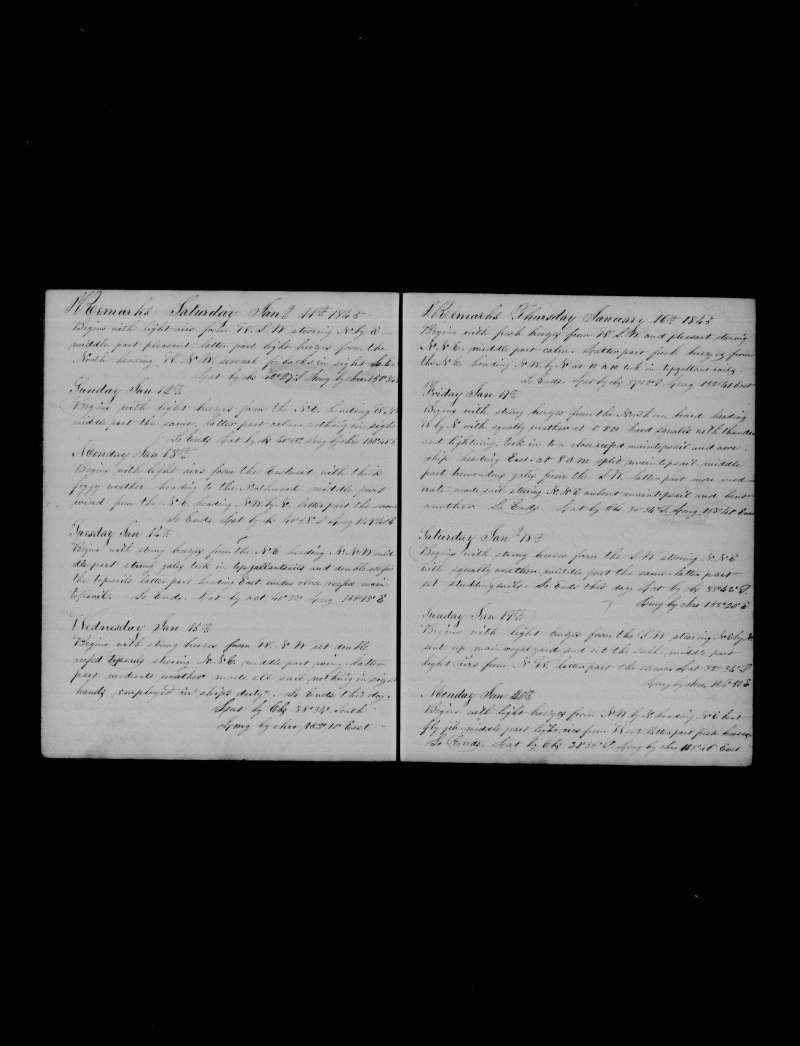 Remarks Saturday Jany 11th 1845
Begins with light airs from W.S.W steering N by E
middle part pleasant. latter part light breezes from the
North heading W.N.W. several finbacks in sight So Ends
Lat by
Sunday Jan 12th
Begins with light breezes from the N.E. heading
middle part the same, latter part calm nothing in sight
So Ends Lat by Long by chro
Monday Jan 13th
Begins with light airs from the Eastward with thick
foggy weather heading to the Northward middle part
wind from the N.E. heading N.W. by N. latter part the same
So Ends Lat by Long
Tuesday Jan 14th
Begins with strong breezes from the N.E. heading N.N.W mid
dle part strong gales took in topgallantsails and double reefed
the topsails latter part heading East under close reefed main
topsail. So Ends. Lat by act Long
Wednesday Jan 15th
Begins with strong breezes from W.S.W set double
reefed topsails steering N.N.E. middle part latter
part moderate weather made all sail nothing in sight
hands employed in ships duty. So Ends this day.
Lat by Obs 38°34' South
Long by chro East
Remarks Thursday January 16th 1845
Begins with fresh breezes from W.S.W. and pleasant steering
N.N.E. middle part calm. Latter part fresh breezes from
the N.E. heading N.W. by N at 10 A.M. took in topgallant sails
So Ends. Lat by Obs Long East
Friday Jan 17th
Begins with strong breezes from the Northern board heading
W by N with squally weather at 5 P.M. hard squalls with thunder
and lightning. took in to a close reefed maintopsail and wore
ship heading East. at 8 a m split maintopsail middle
part tremendous gales from the S.W. latter part more mod
erate made sail steering N.N.E unbent maintopsail and bent
another So Ends. Lat by Obs Long East
Saturday Jany 18th
Begins with strong breezes from the S.W steering N.N.E
with squally weather, middle part the same latter part
set studdingsails. So Ends this day Lat by
Long by chro 155°20' E
Sunday Jan 19th
Begins with light breezes from the S.W steering
sent up mainroyal yard and set the sail, middle part
light airs from N.W. latter part the same. Lat
Long by chro
Monday Jan 20th
Begins with light breezes from N.W by N heading N.E bent
fly jib middle part light airs from West latter part fresh breezes
So Ends. Lat by Obs Long by chro East